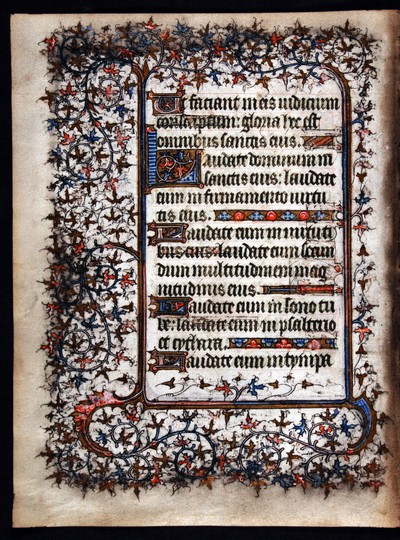 Ut faciant in eis iudicium
conscriptum: gloria hec est
omnibus sanctis eius.
Laudate dominum in
sanctis eius: laudate
eum in firmamento uirtu
tis eius.
Laudate eum in uirtuti
bus eius laudate eum secun
dum multitudinem mag
nitudinis eius.
Laudate eum in sono tu
be: laudate eum in psalterio
et cythara.
Laudate eum in tympa